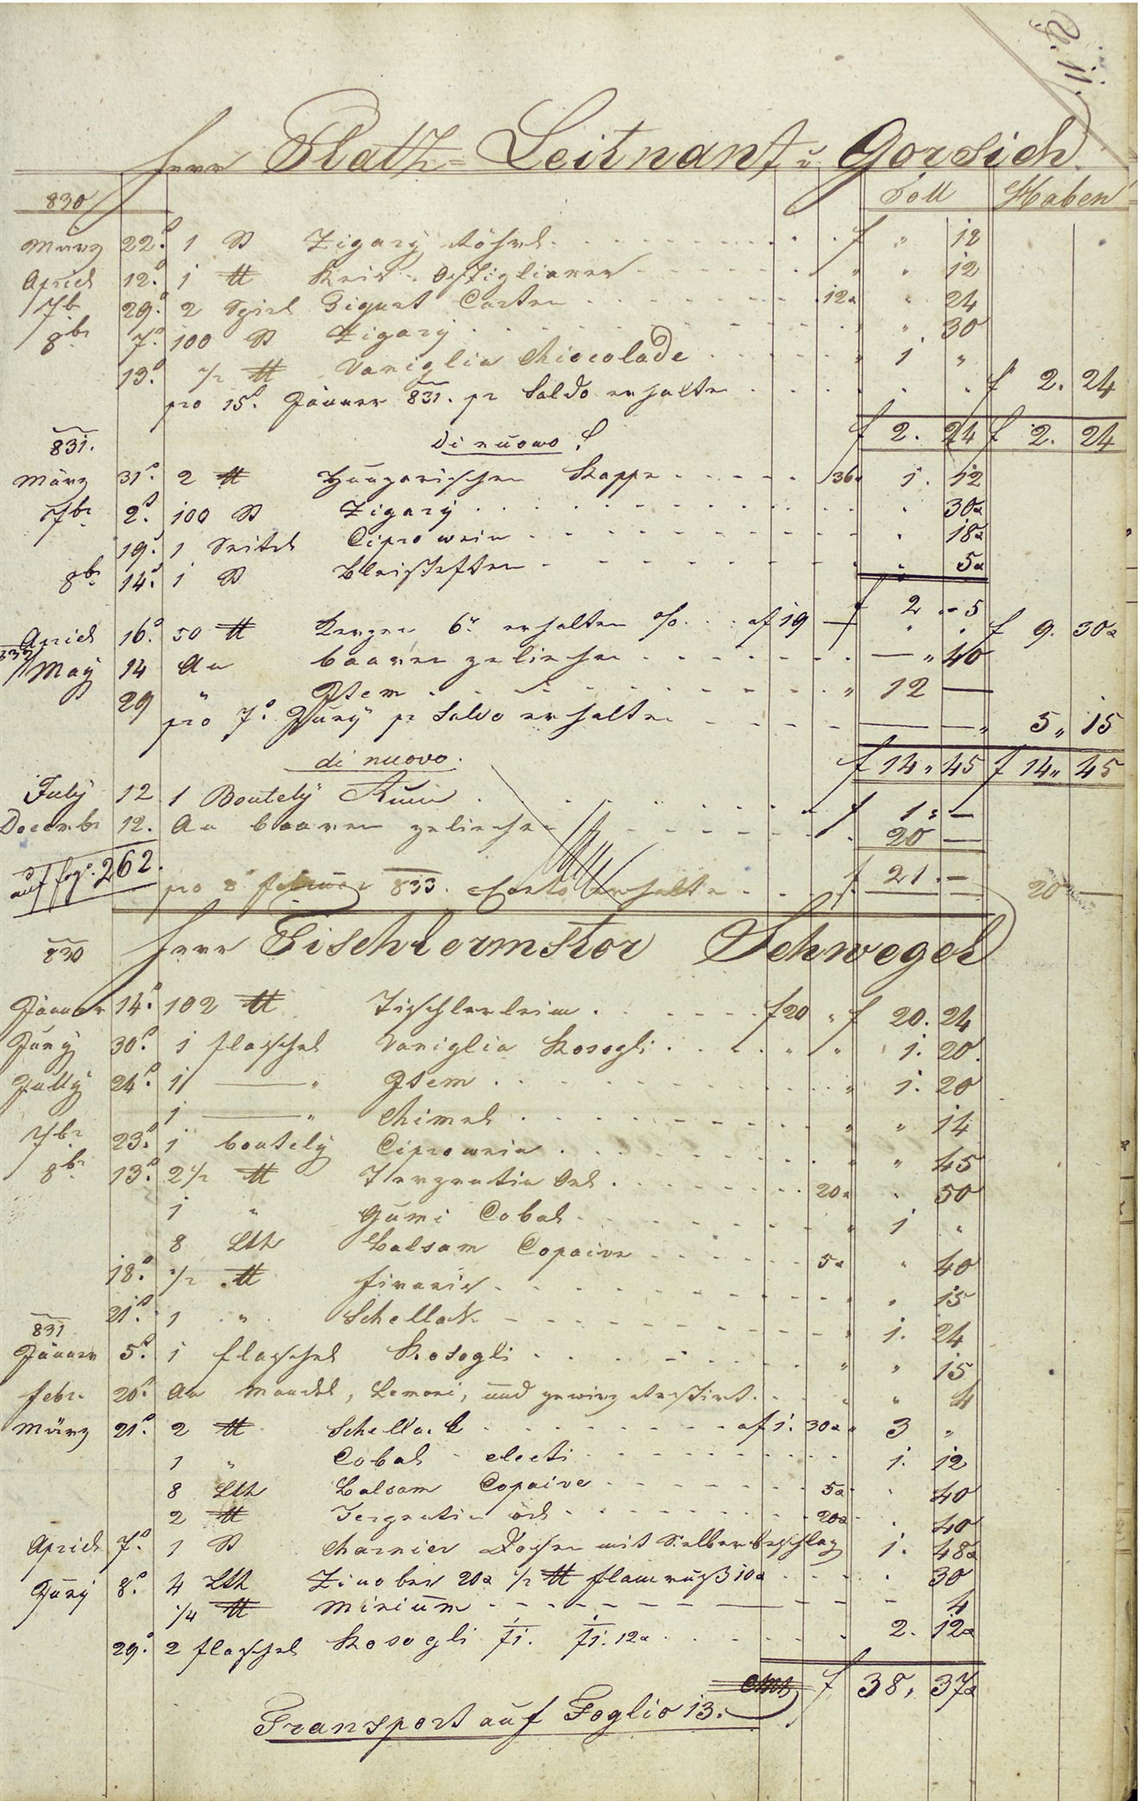 Herr Platz= Leitnant v Gorsich
830 Soll Haben
März 22. 1 St Zigary Röhrl f " 12
April 12. 1 ℔ Reis Ostiglianer " " 12
7br 29. 2 Spiel Piquet Carten 12 " 24
8br 7. 100 St Zigary " 30
13. ½ ℔ Vaniglia Chiocolade " 1 "
pro 15. Jänner 831. pr Saldo erhalten f 2. 24
f 2. 24 f 2. 24
831. Di nuovo
März 31. 2 ℔ Hungarischen 36 1. 12
7br 2. 100 St Zigary 30
19. 1 Seitel Cipro wein 18
8br 14. 1 St Bleistiften " 5
f 2 - 5
April 16. 50 ℔ Kerzen 6r erhalten % af 19 f 9. 30
832
May 14 An baaren geliehen — " 40
29 " Item " 12 —
pro 7. Juny pr Saldo erhalten 5 " 15
f 14 " 45 f 14 " 45
di nuovo.
July 12 1 Boutely Rum f 1 " —
Decembr 12. An baaren geliehen 20 —
auf fog. 262. f 21 . —
pro 8 februar 833. erhalten 20 —
830 Herr Tischlermster Schwegel
Jänner 14. 102 ℔ Tischlerleim f 20 " f 20. 24
Juny 30. 1 flaschel Vaniglia Rosogli " " 1. 20
July 24. 1 — " Item " 1. 20
1 — " Kimel " " 14
7br 23. 1 boutely Ciprowein " " 45
8br 13. 2½ ℔ Terpentin Oel 20 " 50
1 " Gumi Cobal " 1 "
8 Lth Balsam Copaive 5 " 40
18. ½ ℔ firneis " " 15
21. 1 " Schellack " 1. 24
831
Jänner 5. 1 flaschel Rosogli " " 15
febr. 20. An Mandel, Lemoni, und gewirz " " 4
März 21. 2 ℔ Schellack af 1. 30 " 3 "
1 " Cobal electi 1. 12
8 Lth Balsam Copaive 5 " 40
2 ℔ Terpentin öel 20 " 40
April 7. 1 St Charnier Dosen mit Silberbeschlag 1. 48
Juny 8. 4 Lth Zinober 20 ½ ℔ flamruß 10 " 30
¼ ℔ Minium - 4
29. 2 flaschel Rosogli f 1. f 1. 12 2. 12
f 38. 37
Transport auf Foglio 13.